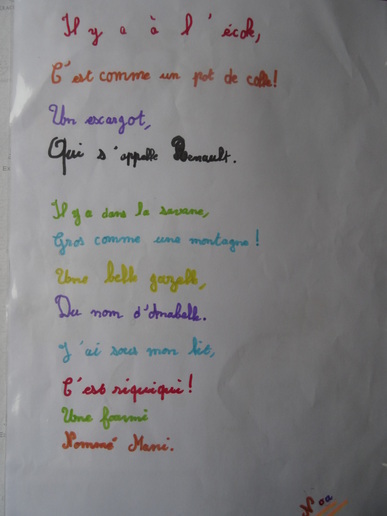 Il y a à l'école,
C'est comme un pot de colle!
Un escargot,
Qui s'appelle Renault.
Il y a dans la savane,
Gros comme une montagne!
Une belle gazelle,
Du nom d'Anabelle.
J'ai sous mon lit,
C'est riquiqui!
Une fourmi
Nommé Mani.
Noa